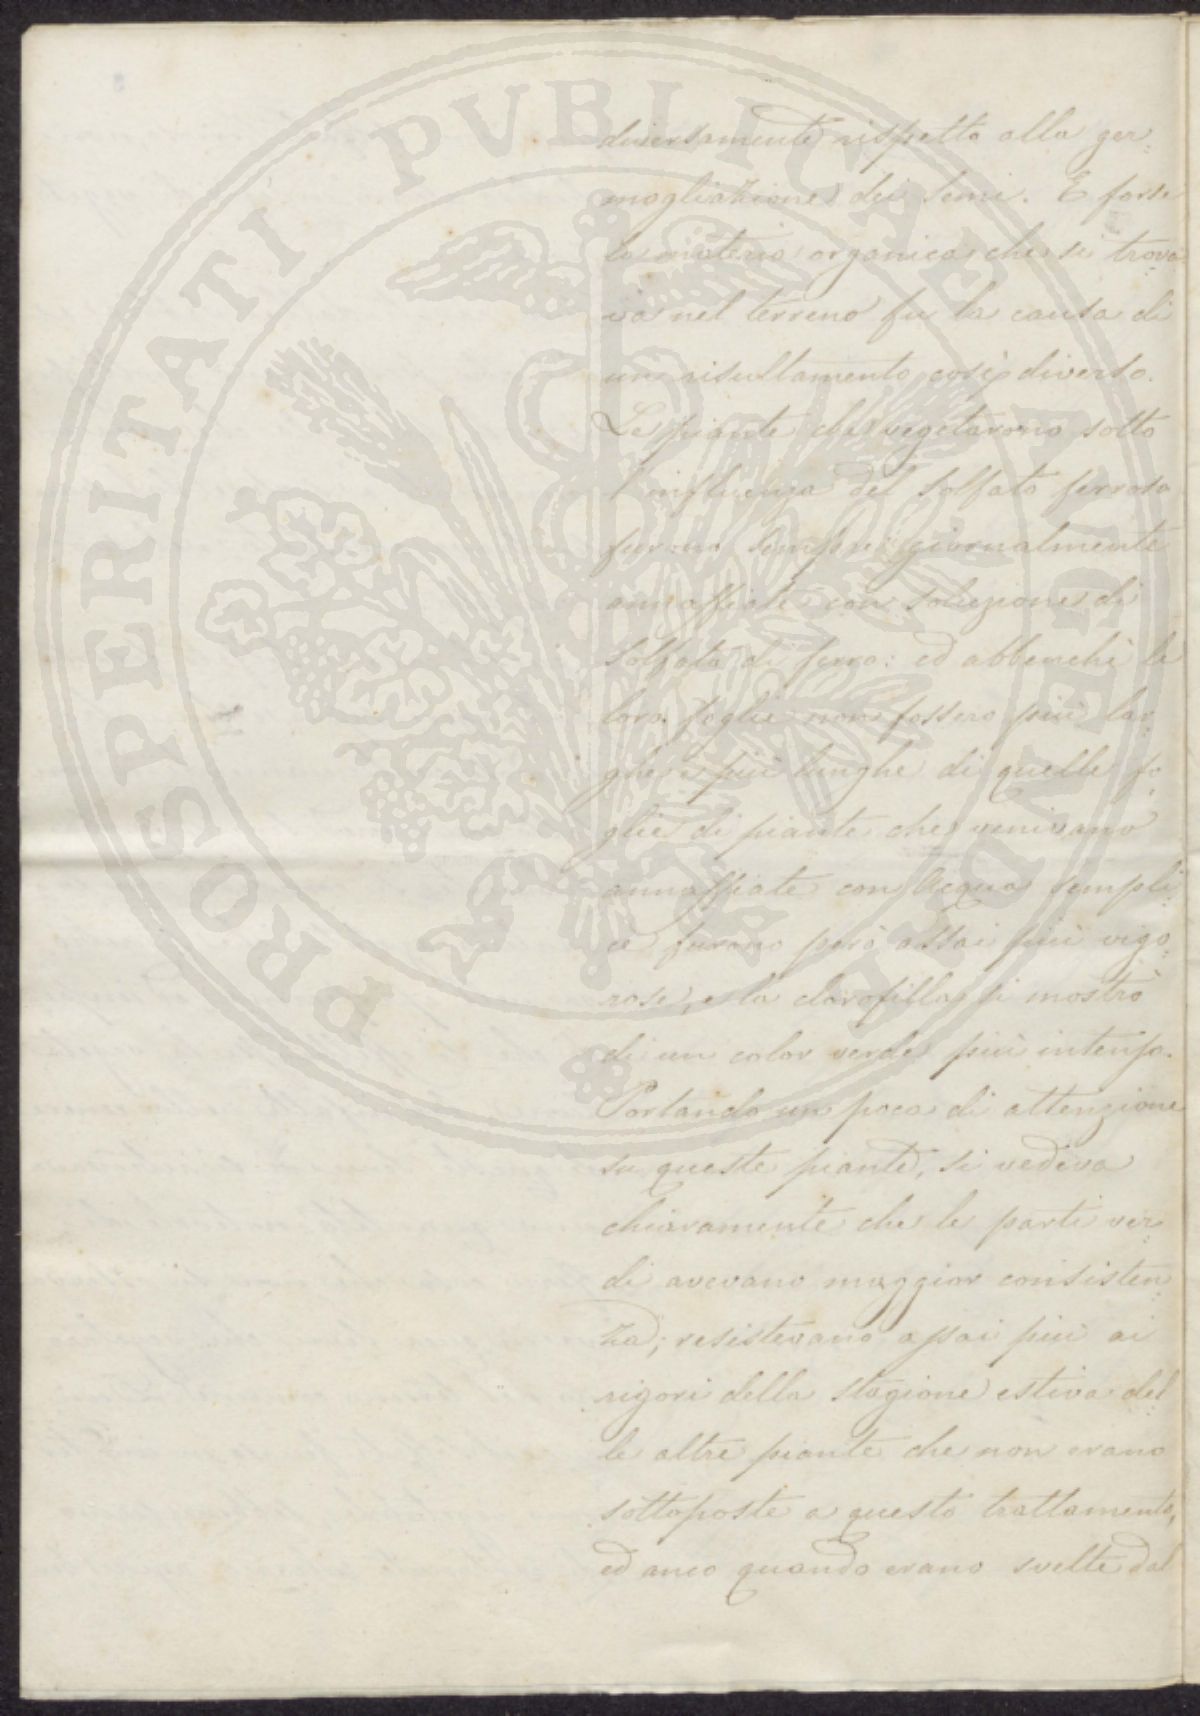 diversamente rispetto alla ger=
mogliazione dei semi. E forse
la materia organica che si trova=
va nel terreno fu la causa di
un risultamento così diverso.
Le piante che vegetarono sotto
l'influenza del solfato ferroso
furono sempre giornalmente
annaffiate con soluzione di
solfato di ferro: ed abbenchè le
loro foglie non fossero più lar=
ghe e più lunghe di quelle fo=
glie di piante che venivano
annaffiate con acqua sempli=
ce furono però assai più vigo=
rose, e la clorofilla si mostrò
di un color verde più intenso.
Portando un poco di attenzione
su queste piante, si vedeva
chiaramente che le parti ver=
di avevano maggior consisten=
za; resistevano assai più ai
rigori della stagione estiva del=
le altre piante che non erano
sottoposte a questo trattamento,
ed anco quando erano svelte dal
PROSPERITATI PVBLICAE AVGENDAE